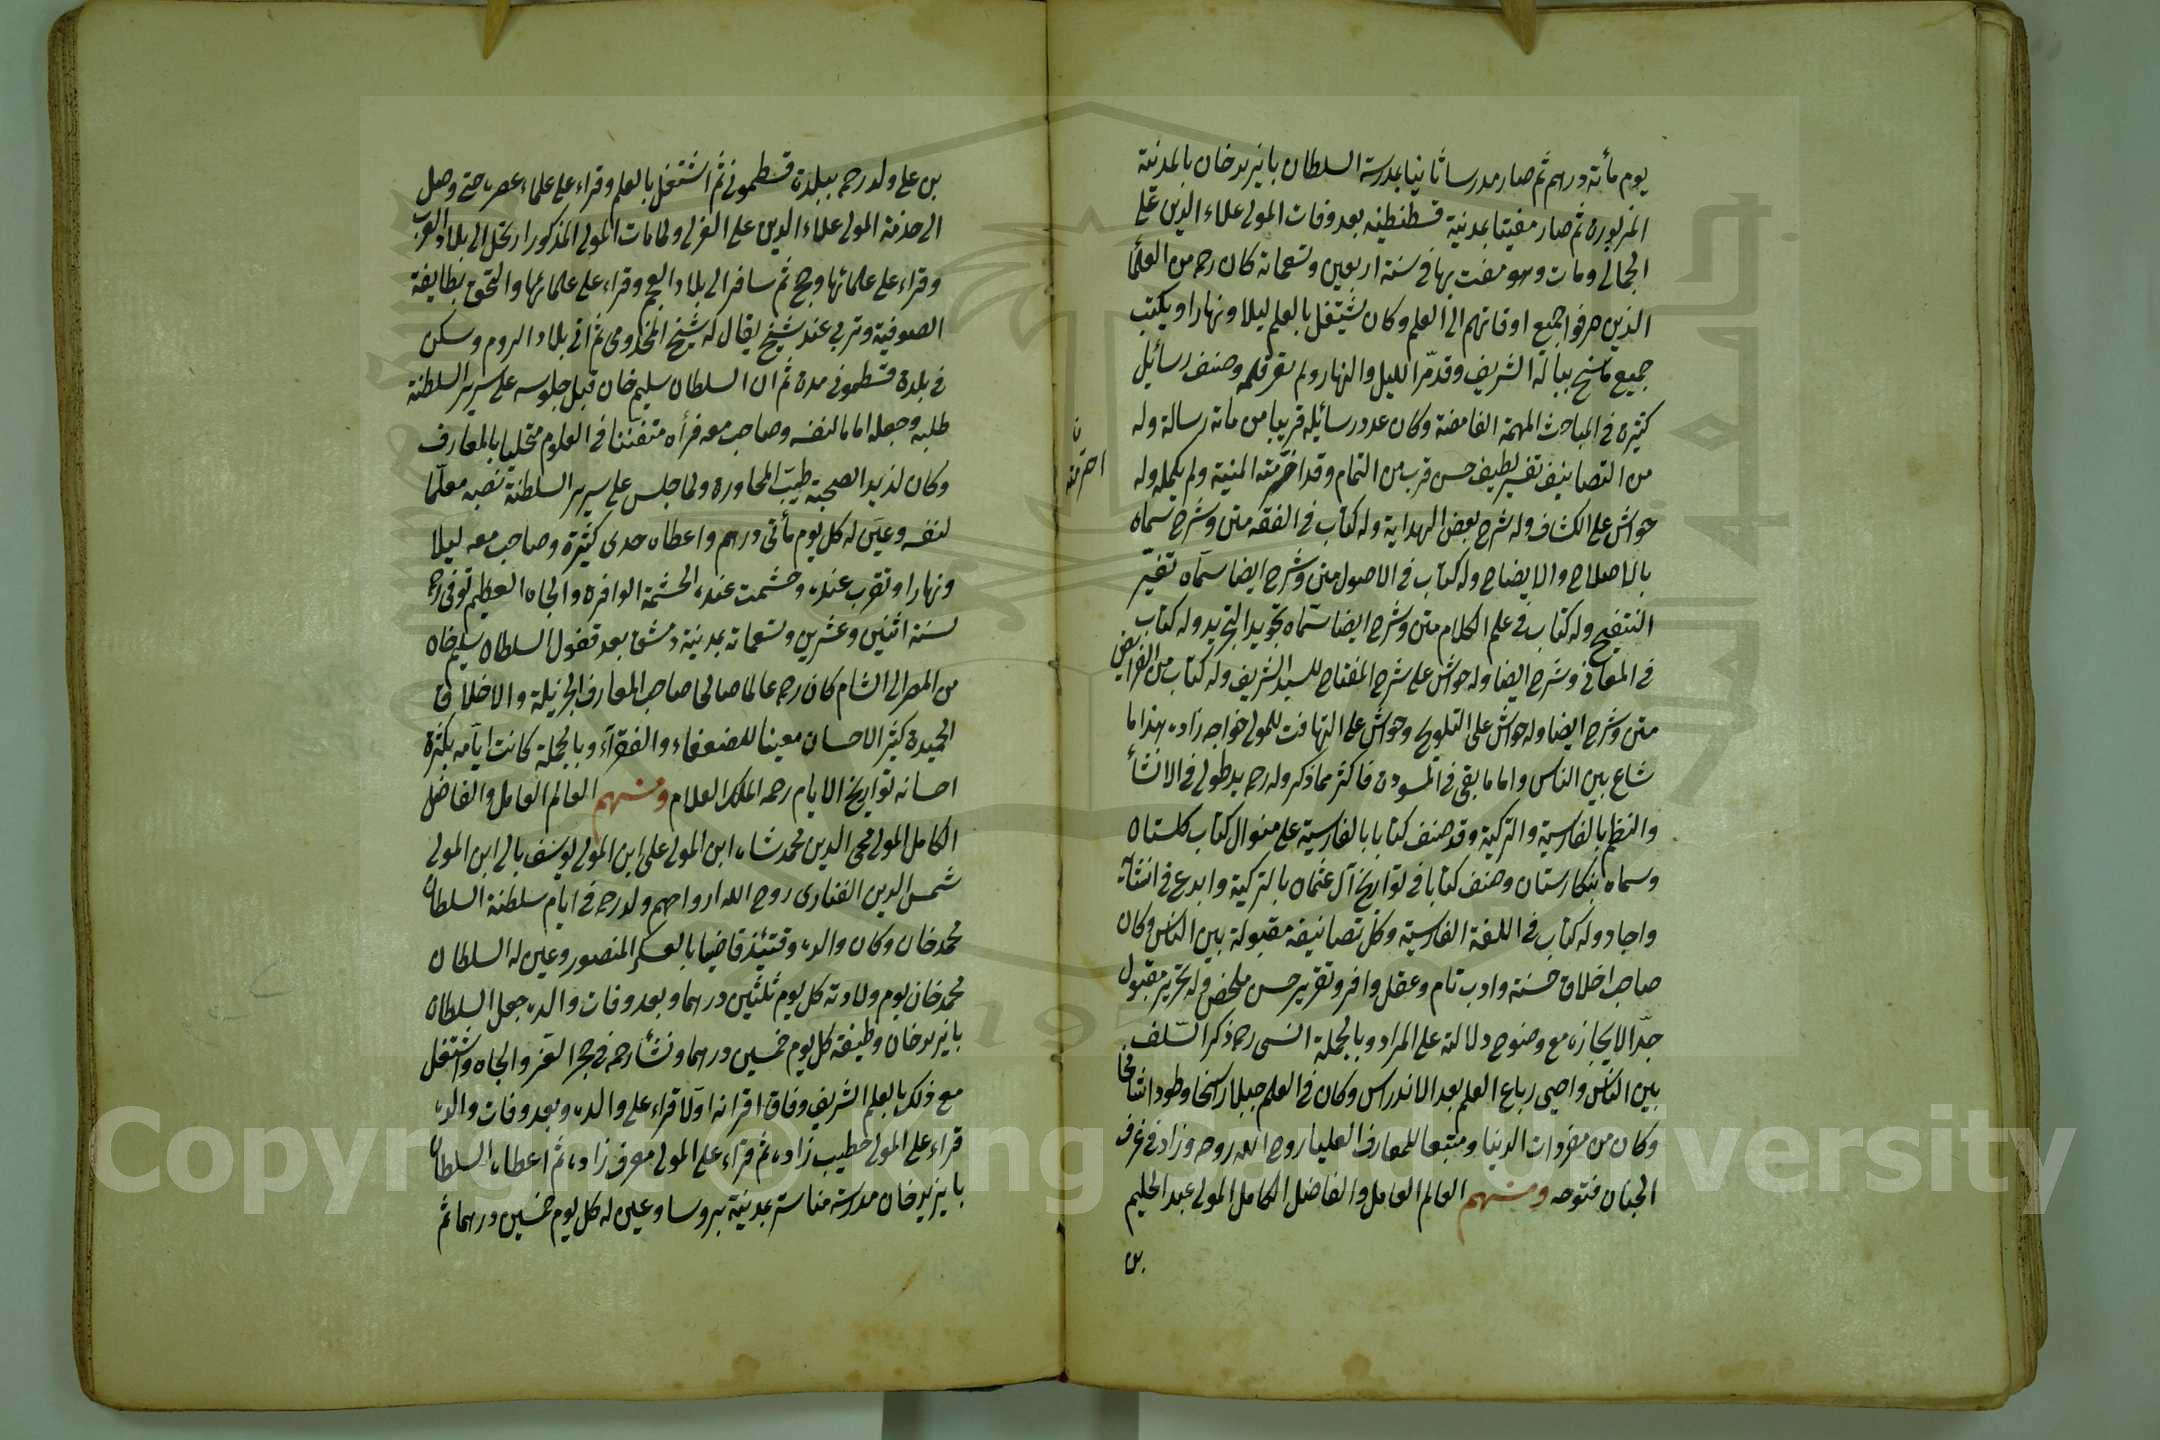 يوم مأته درهم ثم صار مدرسا ثانيا بمدرسة السلطان بايزيدخان بالمدنية
المزبورة ثم صار مفيتا بمدنية قسطنطنيه بعد وفات المولى علاء الدين على
الجمالى ومات وهو مفت بها فى سنة اربعين وتسعمائة كان رحمه من العلما
الذين صرفوا جميع اوقاتهم الى العلم وكان يشتغل بالعلم ليلا ونهارا ويكتب
جميع ماسنح بباله الشريف وقد فتر الليل والنهار ولم يفتر قلمه وصنف رسائل
كثيرة فى المباحث المهمة الغامضة وكان عدد رسائله قريبا من مائة رسالة وله
من التصانيف تفسير لطيف حسن قرب من التمام وقد اخترمته المنية ولم يكمله وله
حواش على الكشاف وله شرح بعض الهداية وله كتاب فى الفقه متن وشرح سماه
بالاصلاح والايضاح وله كتاب فى الاصول متن وشرح ايضا سماه تغير
التنقيح وله كتاب فى علم الكلام متن وشرح ايضا سماه تجويد التجريد وله كتاب
فى المعانى وشرح ايضا وله حواش على شرح المفتاح للسيد الشريف وله كتاب من الفرايض
متن وشرح ايضا وله حواش على التلويح وحواش على التهافت للمولى خواجه زاده هذا ما
شاع بين الناس واما ما بقى فى المسودة فاكثر مما ذكر وله رحمه يد طولى فى الانشأ
والنظم بالفارسية والتركية وقد صنف كتابا بالفارسية على منوال كتاب كلستان
وسماه بنكارستان وصنف كتابا فى تواريخ آل عثمان بالتركية وابدع فى انشائه
واجاد وله كتاب فى اللغة الفارسية وكل تصانيفه مقبولة بين الناس وكان
صاحب اخلاق حسنة وادب تام وعقل وافر وتقرير حسن ملخص وله تحرير مقبول
جدا لايجازه مع وضوح دلالته على المراد وبالجملة انسى رحمه ذكر السّلف
بين الناس واحيى رباع العلم بعد الاندراس وكان فى العلم جبلا راسخا وطودا شامخا
وكان من مفردات الدنيا ومنبعا للمعارف العليا روح الله روحه وزاد فى غرف
الجنان فتوحه ومنهم العالم العامل والفاضل الكامل المولى عبد الحليم
بن
بن على ولد رحمه ببلدة قسطمونى ثم اشتغل بالعلم وقراء على علماء عصره حتى وصل
الى خدمة المولى علاء الدين على العربى ولما مات المولى المذكور ارتحل الى بلاد العرب
وقراء على علمائها وحج ثم سافر الى بلاد العجم وقراء على علمائها والتحق بطايفة
الصوفية وتربى عند شيخ يقال له شيخ المخدومى ثم اتى بلاد الروم وسكن
فى بلدة قسطمونى مدة ثم ان السلطان سليم خان قبل جلوسه على سرير السلطنة
طلبه وجعله اماما لنفسه وصاحب معه فرأه متفننا فى العلوم متحليا بالمعارف
وكان لذيذ الصحبة طيب المحاورة ولما جلس على سرير السلطنة نصبه معلما
لنفسه وعين له كل يوم مأتى درهم واعطاه قرى كثيرة وصاحب معه ليلا
ونهارا وتقرب عنده وحشمت عنده الحشمة الوافرة والجاه العظيم توفى رحمه
لسنة اثنين وعشرين وتسعمائة بمدينة دمشق بعد قفول السلطان سليم خان
من المصر الى الشام كان رحمه عالما صالحا صاحب المعارف الجزيلة والاخلاق
الحميدة كثير الاحسان معينا للضعفاء والفقرآء وبالجملة كانت ايامه بكثرة
احسانه تواريخ الايام رحمه الملك العلام ومنهم العالم العامل والفاضل
الكامل المولى محى الدين محمد شاه ابن المولى على ابن المولى يوسف بالى ابن المولى
شمس الدين الفنارى روح الله ارواحهم ولد رحمه فى ايام سلطنة السلطان
محمد خان وكان والده وقتئذ قاضيا بالعسكر المنصور وعين له السلطان
محمد خان يوم ولادته كل يوم ثلثين درهما وبعد وفات والده جعل السلطان
بايزيد خان وظيفته كل يوم خمسين درهما ونشأ رحمه فى حجر العز والجاه واشتغل
مع ذلك بالعلم الشريف وفاق اقرانه اولا قراء على والده وبعد وفات والده
قراء على المولى خطيب زاده ثم قراء على المولى معرف زاده ثم اعطاه السلطان
بايزيد خان مدرسة مناستر بمدنية بروسا وعين له كل يوم خمسين درهما ثم
Copyright © King Saud University